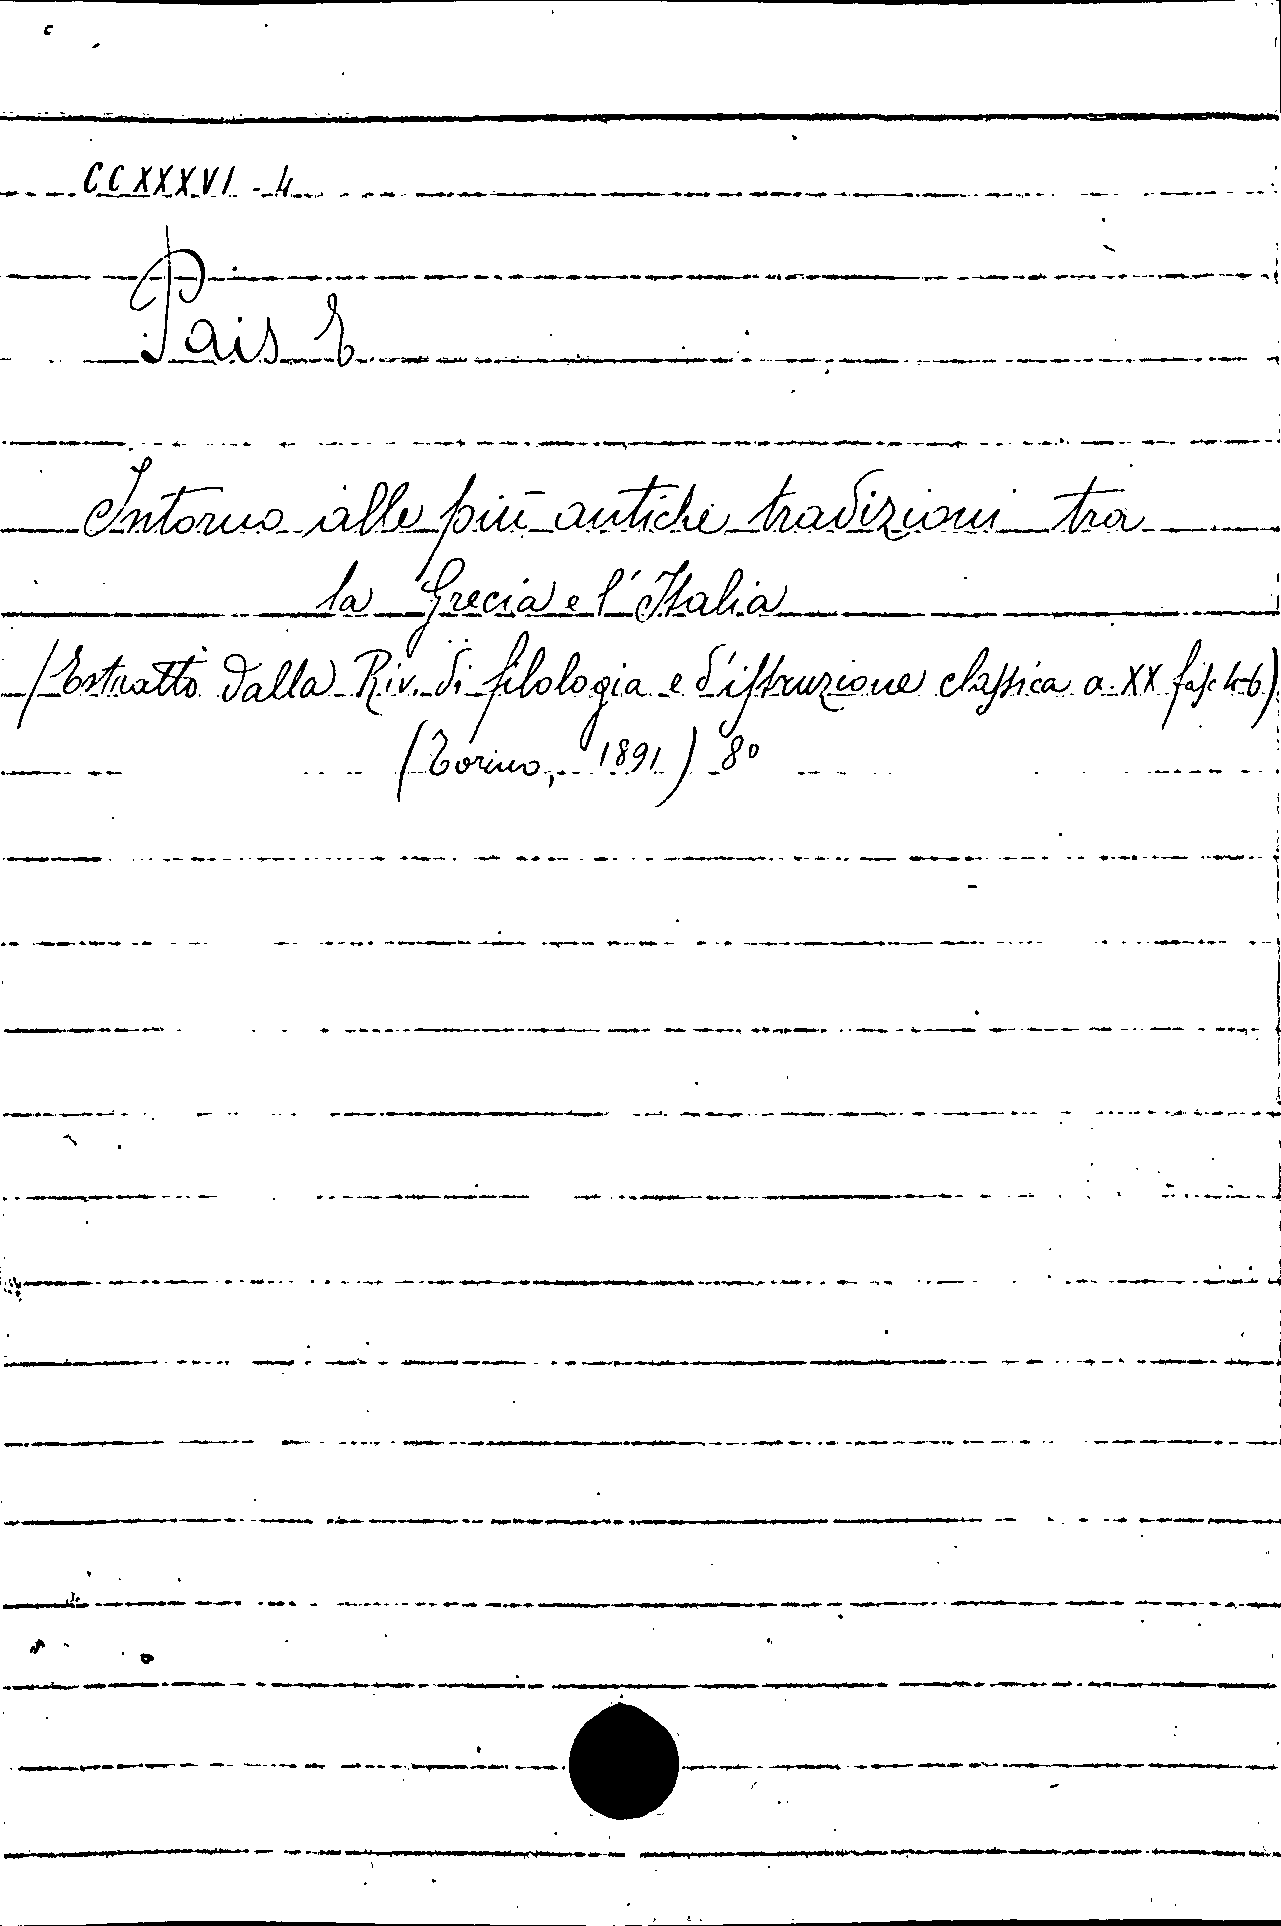 CCXXXVI - 4
Pais E
Intorno alle più antiche tradizioni tra
la Grecia e l'Italia
(Estratto dalla Riv. di filologia e d'istruzione classica a. XX fasc 4-6)
(Torino, 1891) 8º